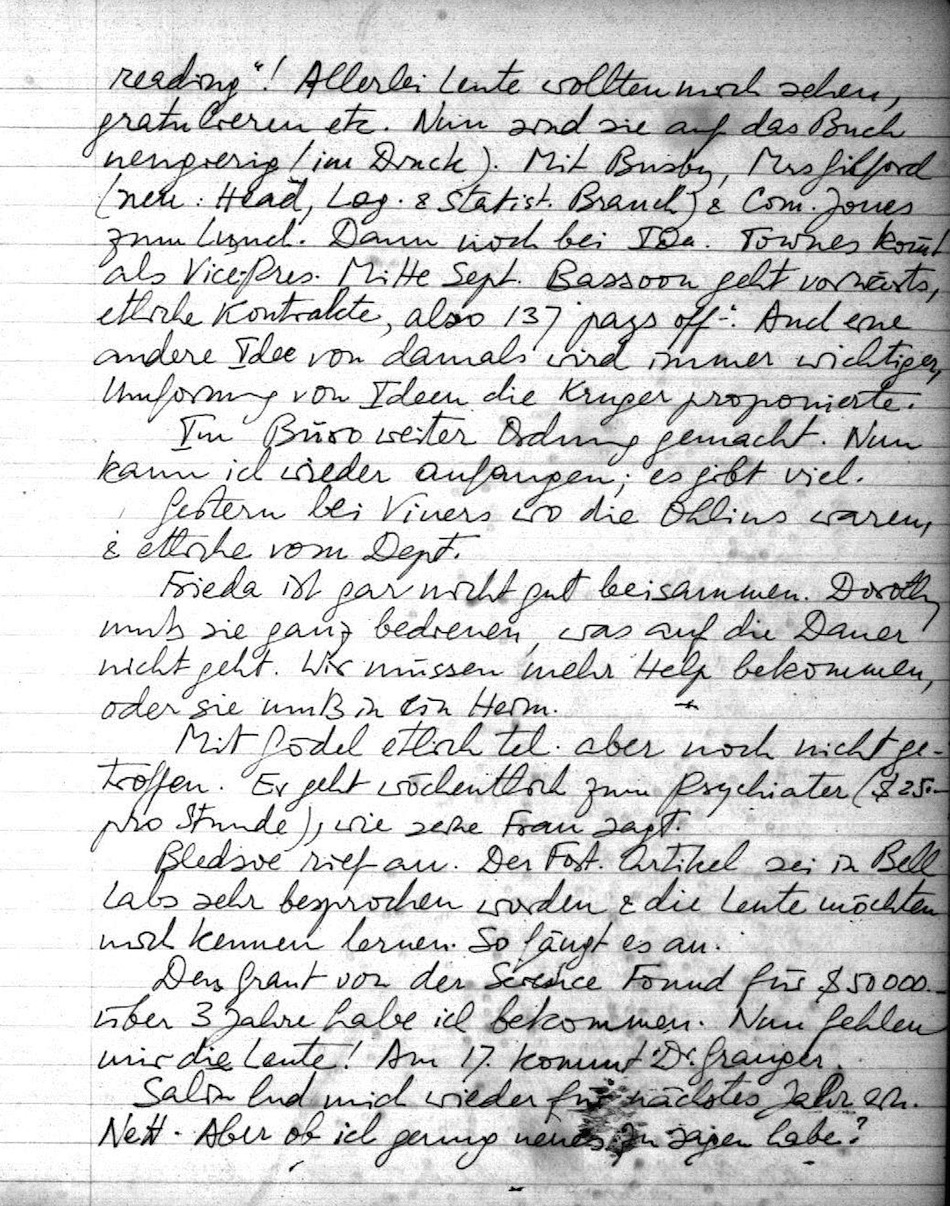 reading"! Allerlei Leute wollten mich sehen,
gratulieren etc. Nun sind sie auf das Buch
neugierig (im Druck). Mit Busby, Mrs Gilford
(neu: Head, Log. & Statist. Branch) & Com. Jones
zum Lunch. Dann noch bei IDA. Townes komt
als Vice-Pres. Mitte Sept. Bassoon geht vorwärts,
etliche Kontrakte, also 137 pays off-. Auch eine
andere Idee von damals wird immer wichtiger,
Umformung von Ideen die Kruger proponierte.
Im Büro weiter Ordnung gemacht. Nun
kann ich wieder anfangen; es gibt viel.
Gestern bei Viners wo die Ohlins waren,
& etliche vom Dept.
Frieda ist gar nicht gut beisammen. Dorothy
muß sie ganz bedienen, was auf die Dauer
nicht geht. Wir müssen mehr Help bekommen,
oder sie muß in ein Heim.
Mit Gödel etlich tel. aber noch nicht ge-
troffen. Er geht wöchentlich zum Psychiater ($25.–
pro Stunde), wie seine Frau sagt.
Bledsoe rief an. Der Fort. Artikel sei in Bell
Labs sehr besprochen worden & die Leute möchten
mich kennen lernen. So fängt es an.
Den Grant von der Science Found für $50000.–
über 3 Jahre habe ich bekommen. Nun fehlen
mir die Leute! Am 17. kommt Dr. Granger.
Salin lud mich wieder für nächstes Jahr ein.
Nett. Aber ob ich genug neues zu sagen habe?